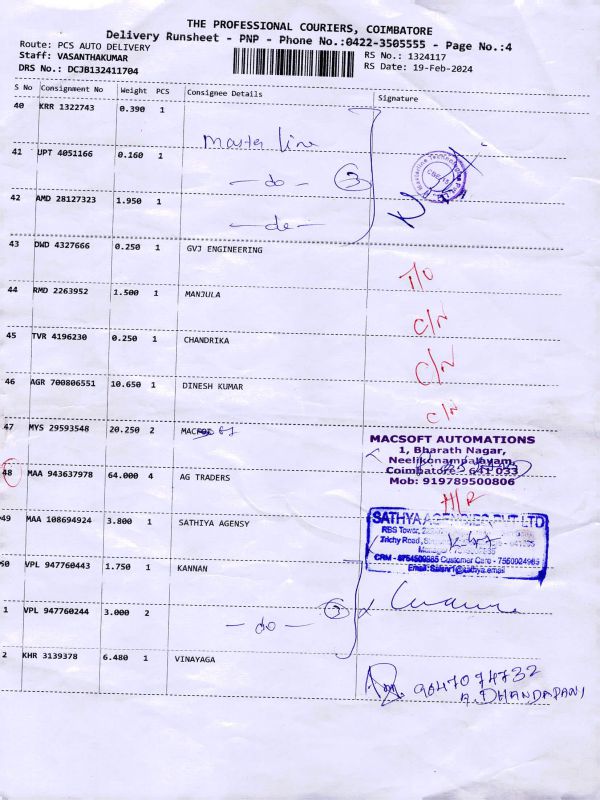 THE PROFESSIONAL COURIERS, COIMBATORE
Delivery Runsheet - PNP - Phone No.:0422-3505555 - Page No.:4
Route: PCS AUTO DELIVERY
Staff: VASANTHAKUMAR
DRS No.: DCJB132411704
RS No.: 1324117
RS Date: 19-Feb-2024
S No Consignment No Weight PCS Consignee Details Signature
40 KRR 1322743 0.390 1 Master line
41 UPT 4051166 0.160 1 -do- 3
42 AMD 28127323 1.950 1 -do-
43 DWD 4327666 0.250 1 GVJ ENGINEERING T/O
44 RMD 2263952 1.500 1 MANJULA C/N
45 TVR 4196230 0.250 1 CHANDRIKA C/N
46 AGR 700806551 10.650 1 DINESH KUMAR C/N
47 MYS 29593548 20.250 2
MACSOFT AUTOMATIONS
1, Bharath Nagar,
Neelikonampalayam,
Coimbatore - 641 033
Mob: 919789500806
48 MAA 943637978 64.000 4 AG TRADERS
49 MAA 108694924 3.800 1 SATHIYA AGENSY
SATHYA AGENCIES PVT LTD
RBS Tower,
Trichy Road,
Customer Care - 7550024985
50 VPL 947760443 1.750 1 KANNAN
1 VPL 947760244 3.000 2 -do- 3
2 KHR 3139378 6.480 1 VINAYAGA
9047074732
A. DHANDAPANI